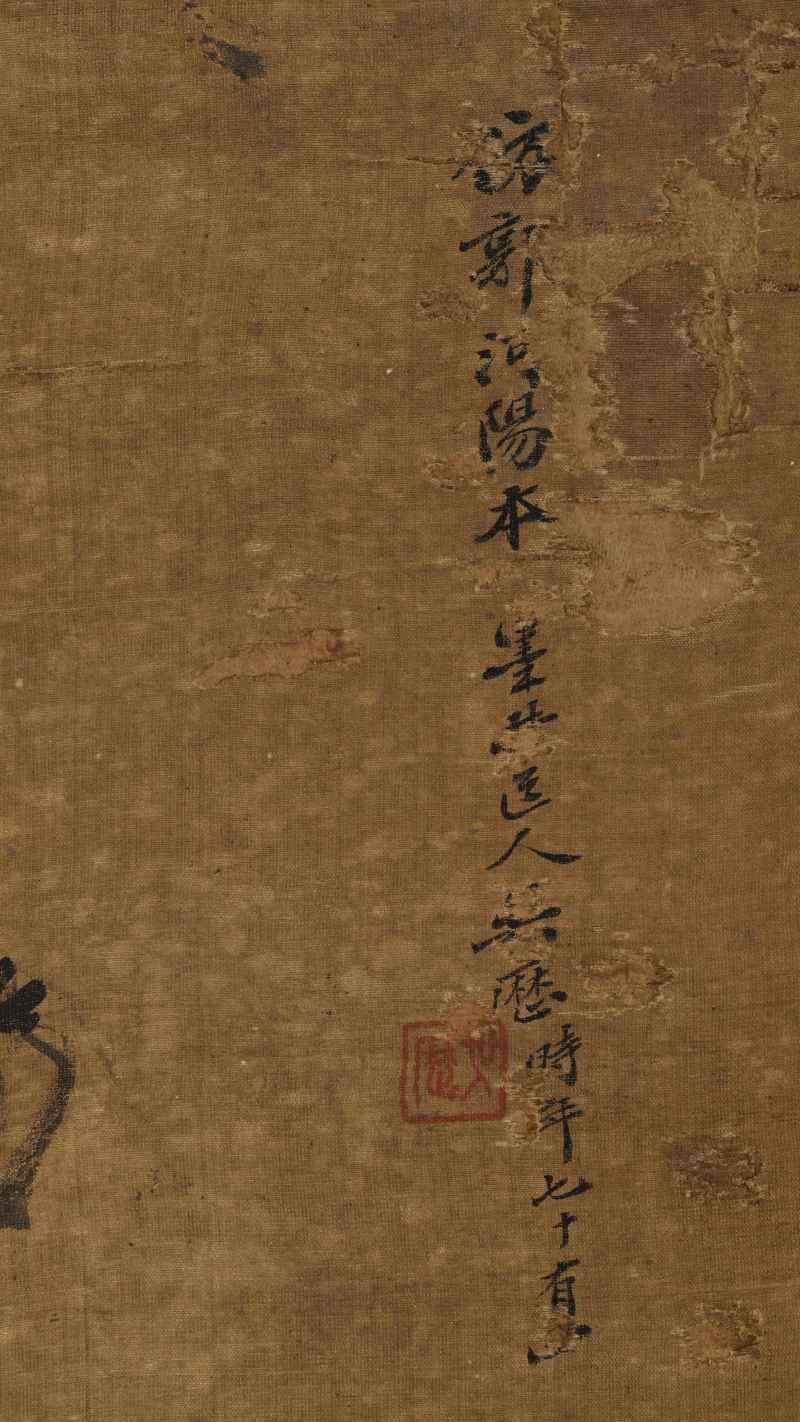 郭河陽本 墨井道人吳歷時年七十有